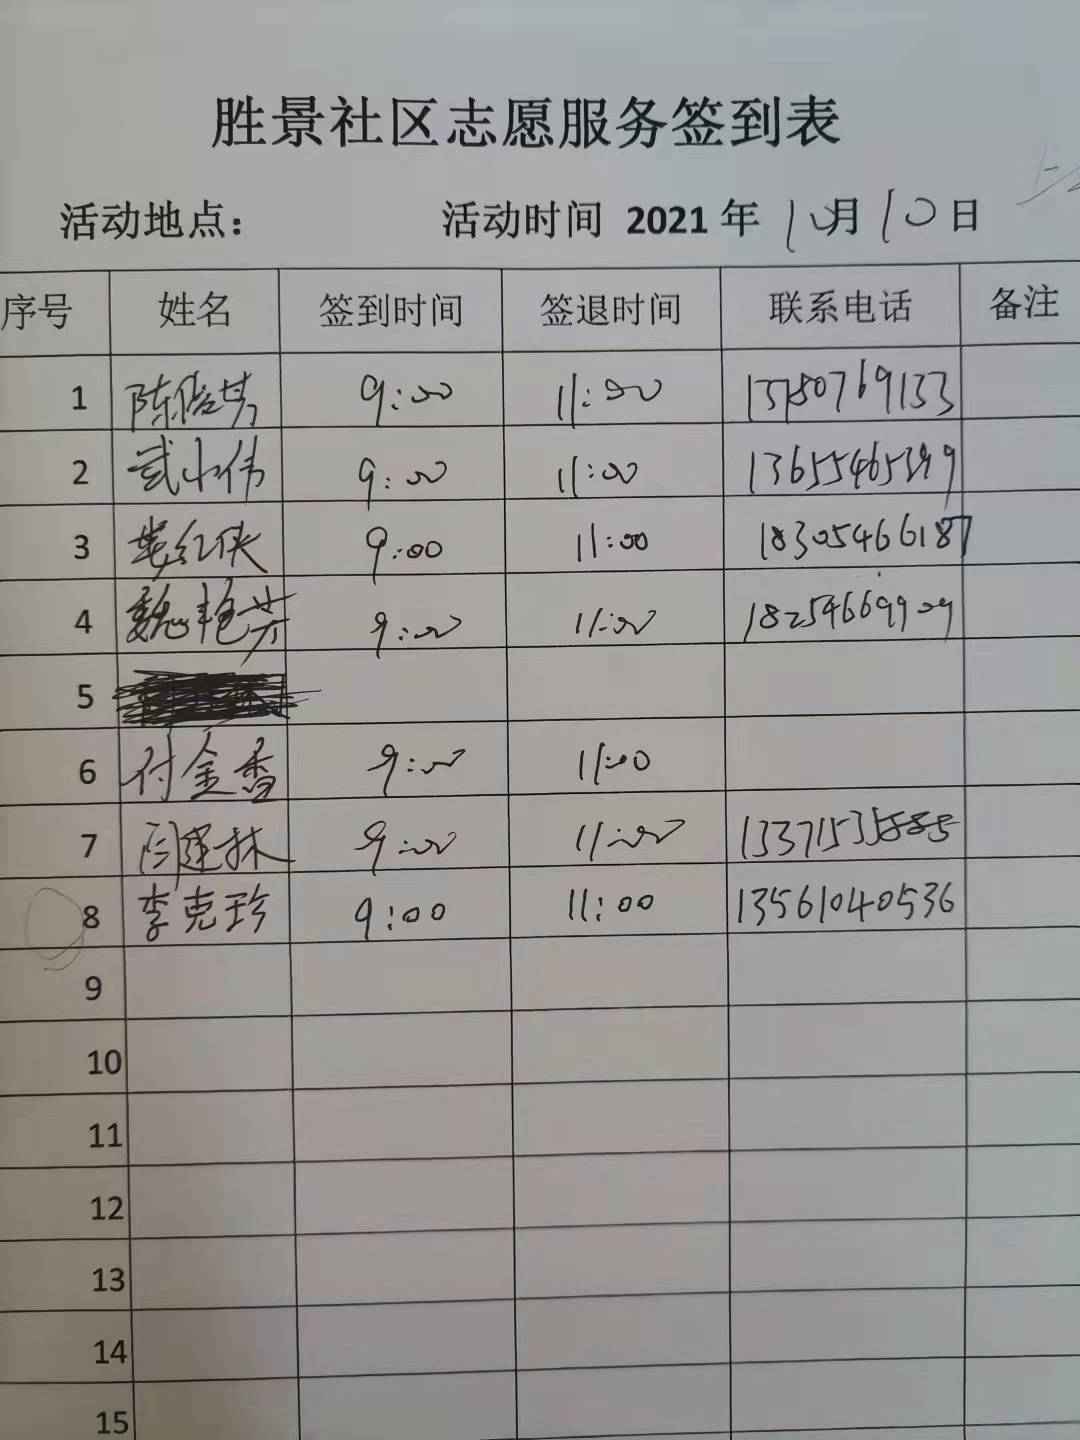 胜景社区志愿服务签到表
活动地点： 活动时间 2021 年 10月 10日
序号 姓名 签到时间 签退时间 联系电话 备注
1 9:00 11:00
2 武小伟 9:00 11:00 13655465399
3 红侠 9:00 11:00 18305466187
4 魏艳芳 9:00 11:00
5
6 付金香 9:00 11:00
7 闫建林 9:00 11:00 13371535885
8 李克珍 9:00 11:00 13561040536
9
10
11
12
13
14
15